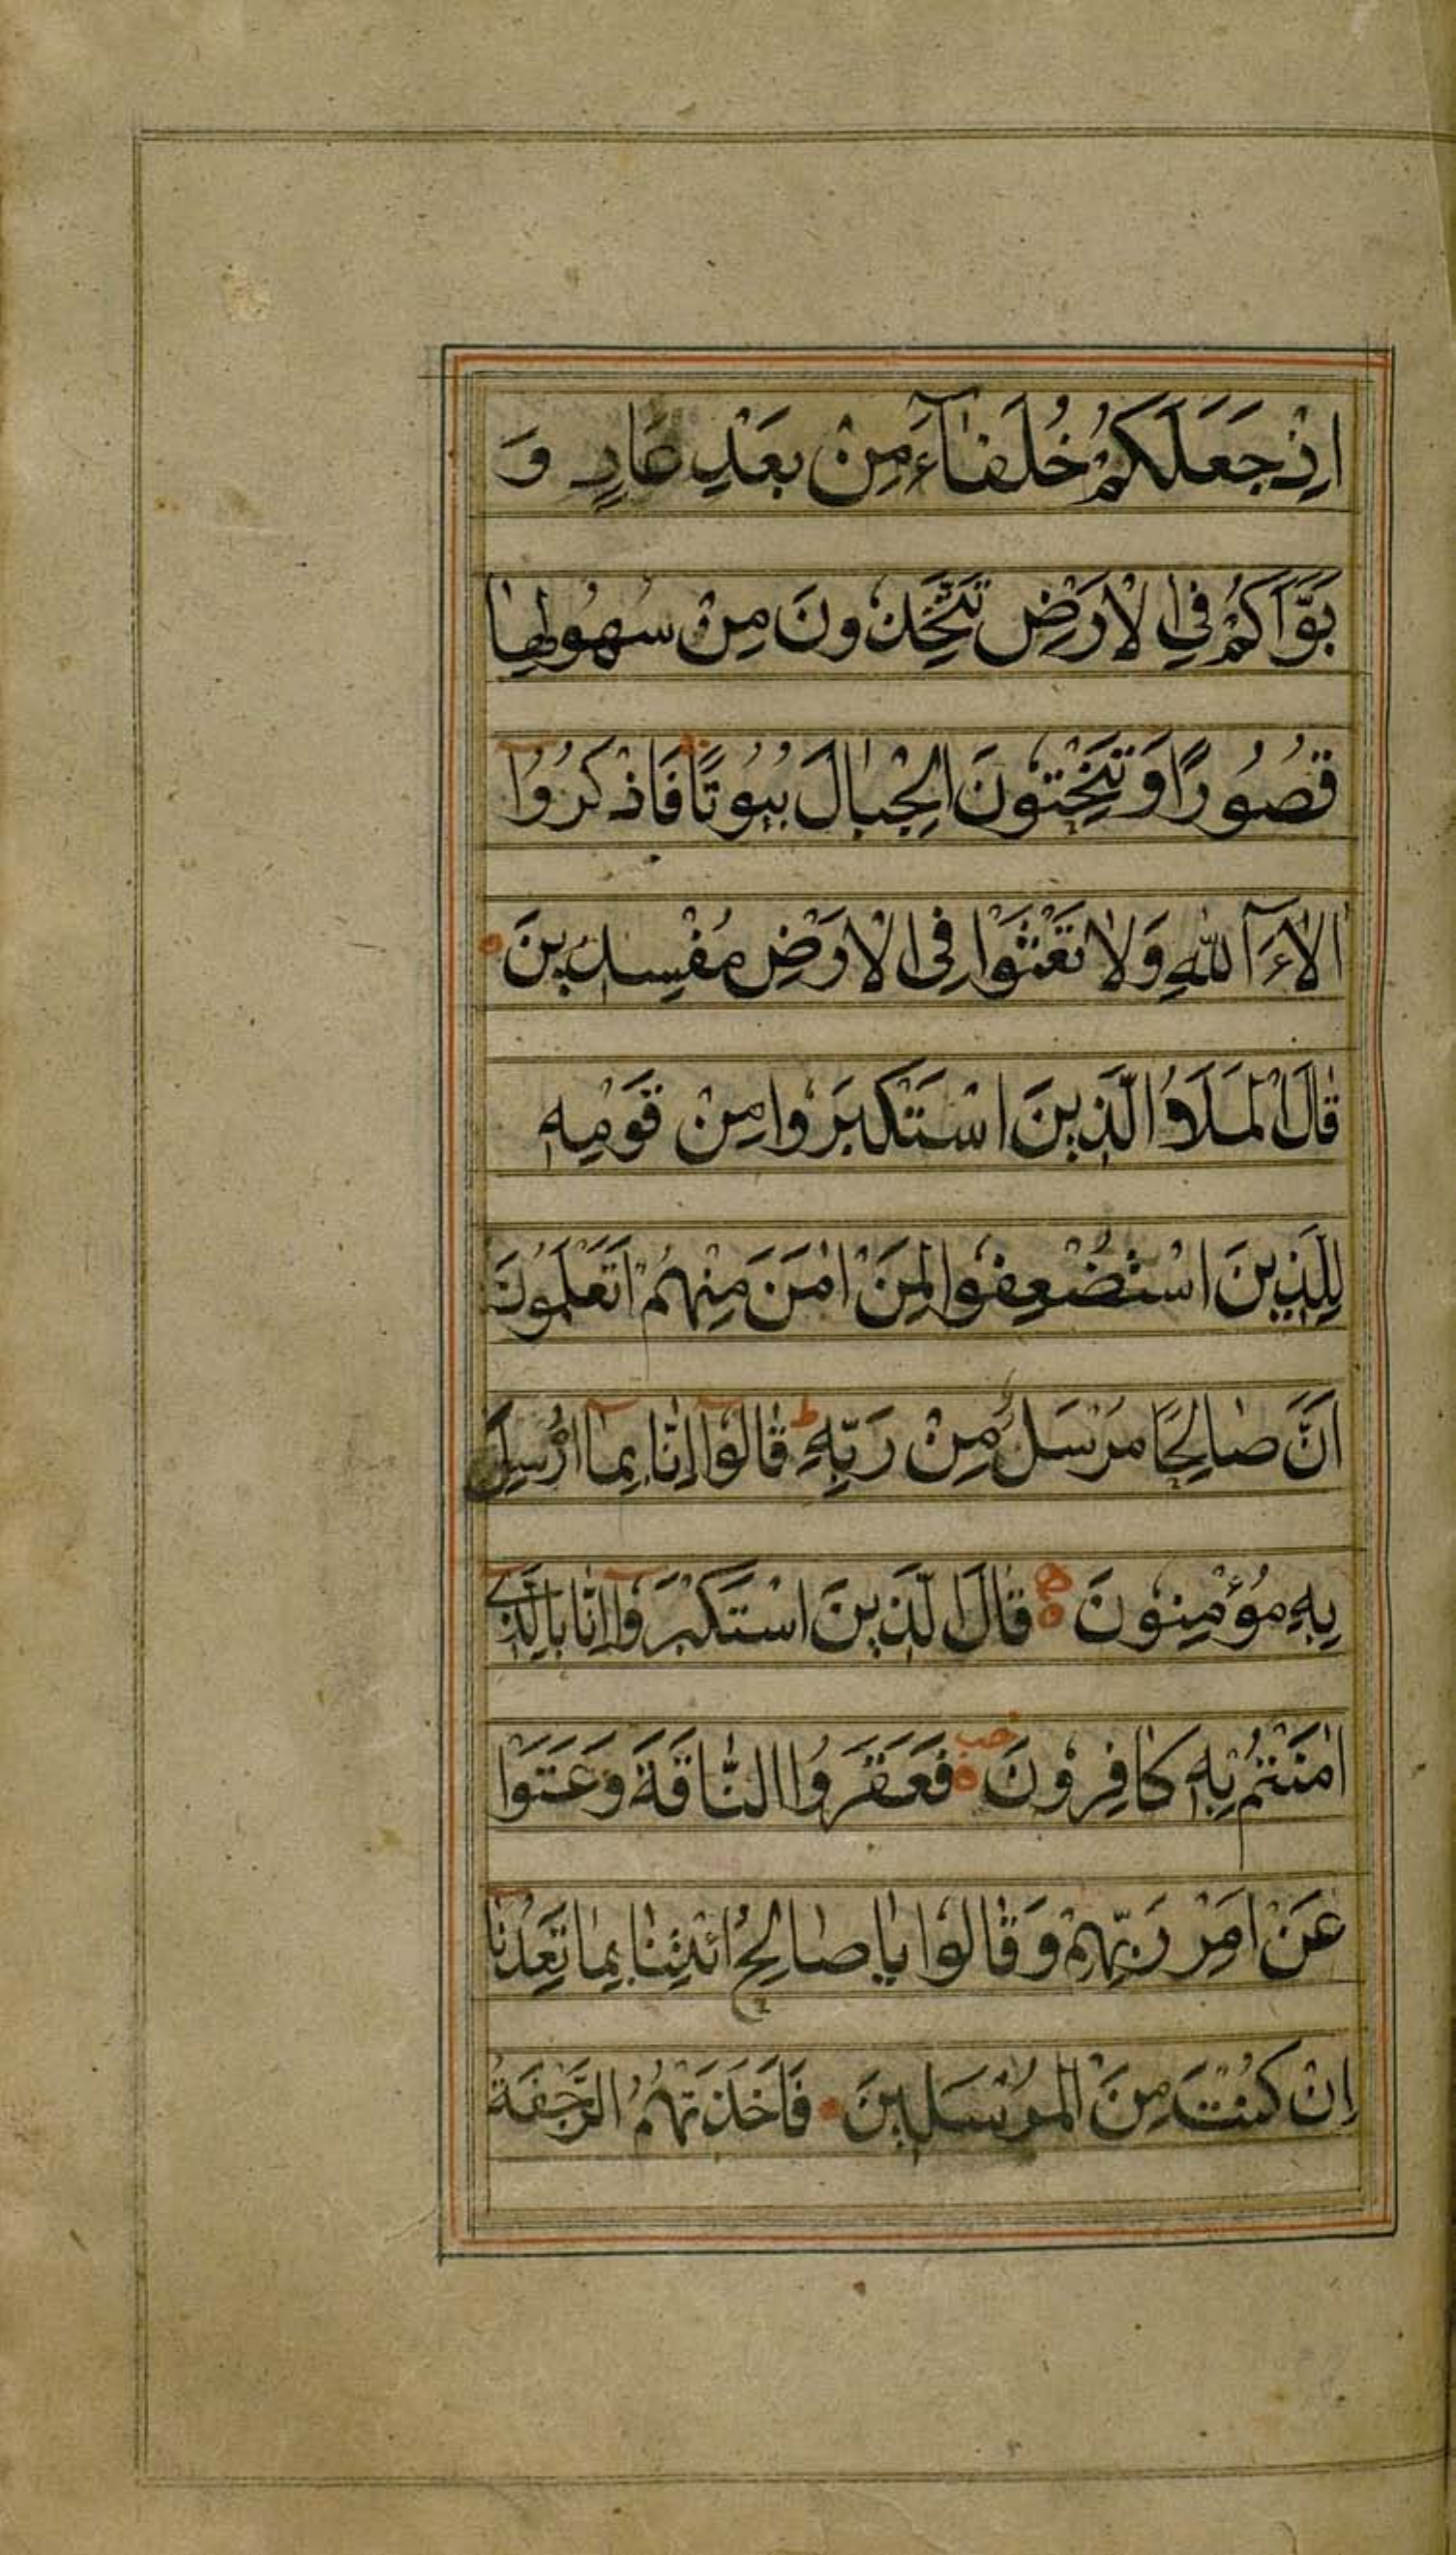 اِذْ جَعَلَكُمْ خُلَفَآءَ مِنْ بَعْدِ عَادٍ وَ
بَوَّاَكُمْ فِي الْاَرْضِ تَتَّخِذُونَ مِنْ سُهُولِهَا
قُصُورًا وَتَنْحِتُونَ الْجِبَالَ بُيُوتًا فَاذْكُرُوا
الَاءَ اللهِ وَلَا تَعْثَوْا فِي الْاَرْضِ مُفْسِدِينَ
قَالَ الْمَلَاُ الَّذِينَ اسْتَكْبَرُوا مِنْ قَوْمِهِ
لِلَّذِينَ اسْتُضْعِفُوا لِمَنْ اٰمَنَ مِنْهُمْ اَتَعْلَمُونَ
اَنَّ صَالِحًا مُرْسَلٌ مِنْ رَبِّهِ ط قَالُوا اِنَّا بِمَا اُرْسِلَ
بِهِ مُؤْمِنُونَ ه قَالَ الَّذِينَ اسْتَكْبَرُوا اِنَّا بِالَّذِي
اٰمَنْتُمْ بِهِ كَافِرُونَ فَعَقَرُوا النَّاقَةَ وَعَتَوْا
عَنْ اَمْرِ رَبِّهِمْ وَقَالُوا يَا صَالِحُ ائْتِنَا بِمَا تَعِدُنَا
اِنْ كُنْتَ مِنَ الْمُرْسَلِينَ فَاَخَذَتْهُمُ الرَّجْفَةُ